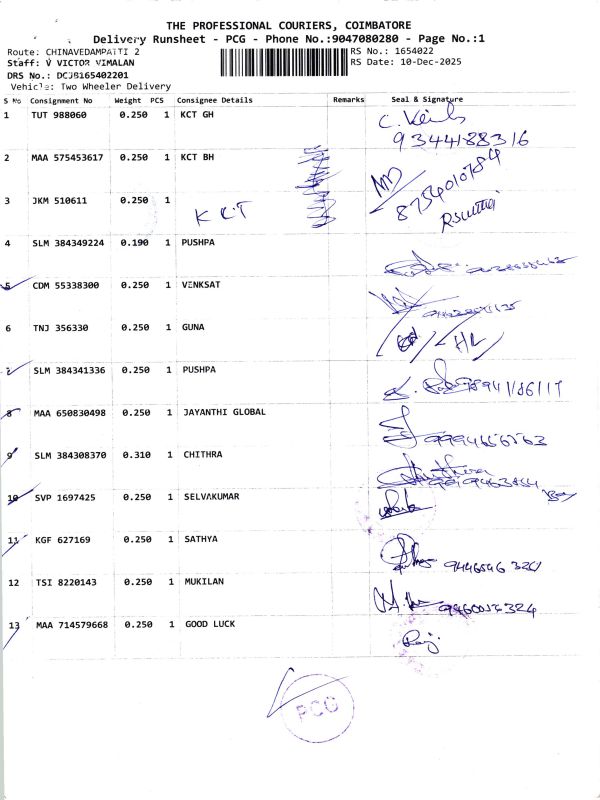 THE PROFESSIONAL COURIERS, COIMBATORE
Delivery Runsheet - PCG - Phone No.:9047080280 - Page No.:1
Route: CHINAVEDAMPATTI 2
RS No.: 1654022
Staff: V VICTOR VIMALAN
RS Date: 10-Dec-2025
DRS No.: DCJB165402201
Vehicle: Two Wheeler Delivery
S No Consignment No Weight PCS Consignee Details Remarks Seal & Signature
1 TUT 988060 0.250 1 KCT GH
9344188316
2 MAA 575453617 0.250 1 KCT BH
8754010784
3 JKM 510611 0.250 1 KCT
4 SLM 384349224 0.190 1 PUSHPA
5 CDM 55338300 0.250 1 VENKSAT
6 TNJ 356330 0.250 1 GUNA
7 SLM 384341336 0.250 1 PUSHPA
8 MAA 650830498 0.250 1 JAYANTHI GLOBAL
9 SLM 384308370 0.310 1 CHITHRA
10 SVP 1697425 0.250 1 SELVAKUMAR
11 KGF 627169 0.250 1 SATHYA
12 TSI 8220143 0.250 1 MUKILAN
13 MAA 714579668 0.250 1 GOOD LUCK
PCG